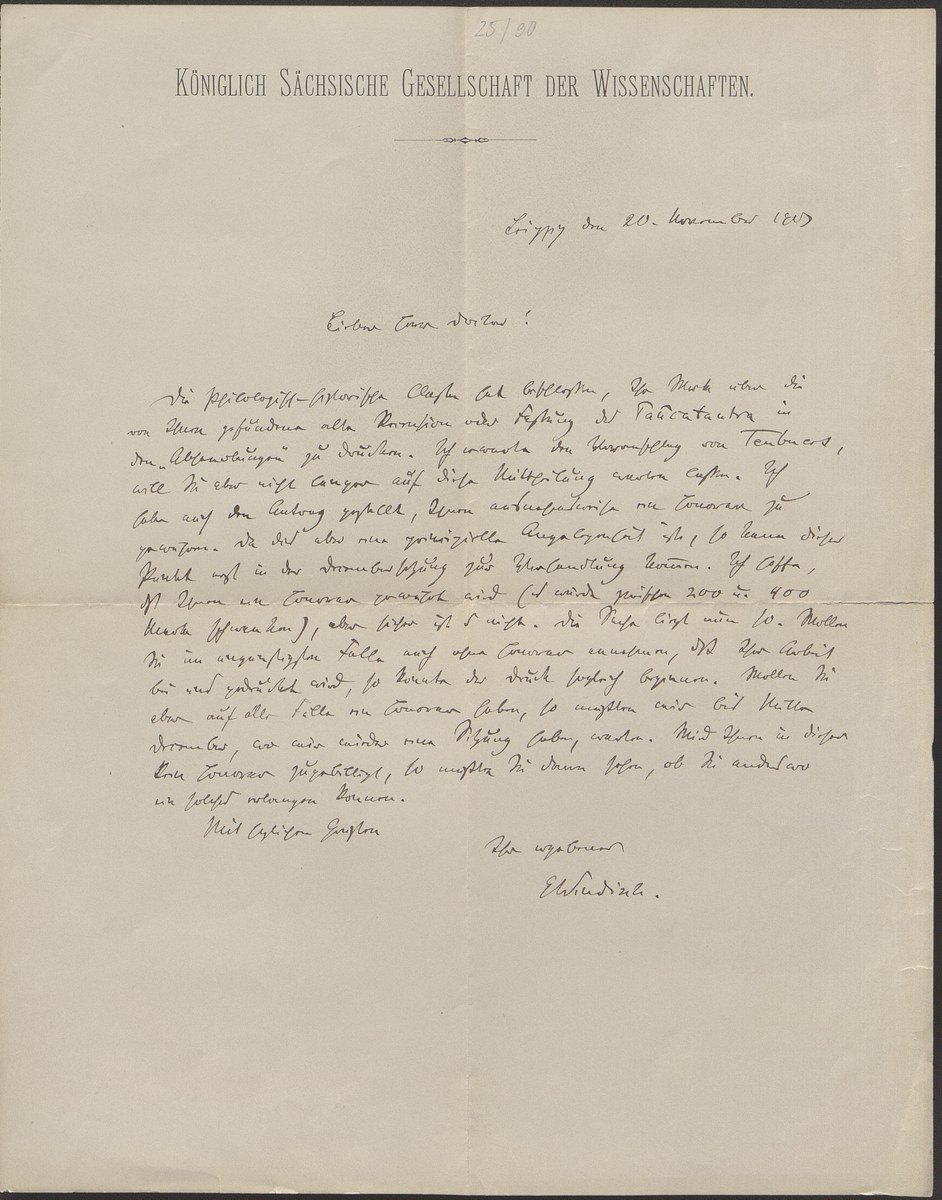 25/90
KÖNIGLICH SÄCHSISCHE GESELLSCHAFT DER WISSENSCHAFTEN.
Leipzig den 20. November 1903
Lieber Herr Doctor!
Die philologisch-historische Classe hat beschlossen, Ihr Werk über die
von Ihnen gefundene alte Recension oder Fassung des Tantrākhyāyika in
den „Abhandlungen" zu drucken. Ich erwarte den Voranschlag von Teubners,
will Sie aber nicht länger auf diese Mittheilung warten lassen. Ich
habe auch den Antrag gestellt, Ihnen ausnahmsweise ein Honorar zu
gewähren. Da dies aber eine principielle Angelegenheit ist, so kann dieser
Punkt erst in der Decembersitzung zur Verhandlung kommen. Ich hoffe,
dß Ihnen ein Honorar gewährt wird (es würde zwischen 200 u. 400
Mark schwanken), aber sicher ist es nicht. Die Sache liegt nun so. Wollen
Sie im ungünstigsten Falle auch ohne Honorar annehmen, dß Ihre Arbeit
bei uns gedruckt wird, so könnte der Druck sogleich beginnen. Wollen Sie
aber auf alle Fälle ein Honorar haben, so müßten wir bis Mitte
December, wo wir wieder eine Sitzung haben, warten. Wird Ihnen in dieser
kein Honorar zugebilligt, so müßten Sie dann sehen, ob Sie anderswo
ein solches erlangen können.
Mit herzlichen Grüßen
Ihr ergebener
EWindisch.